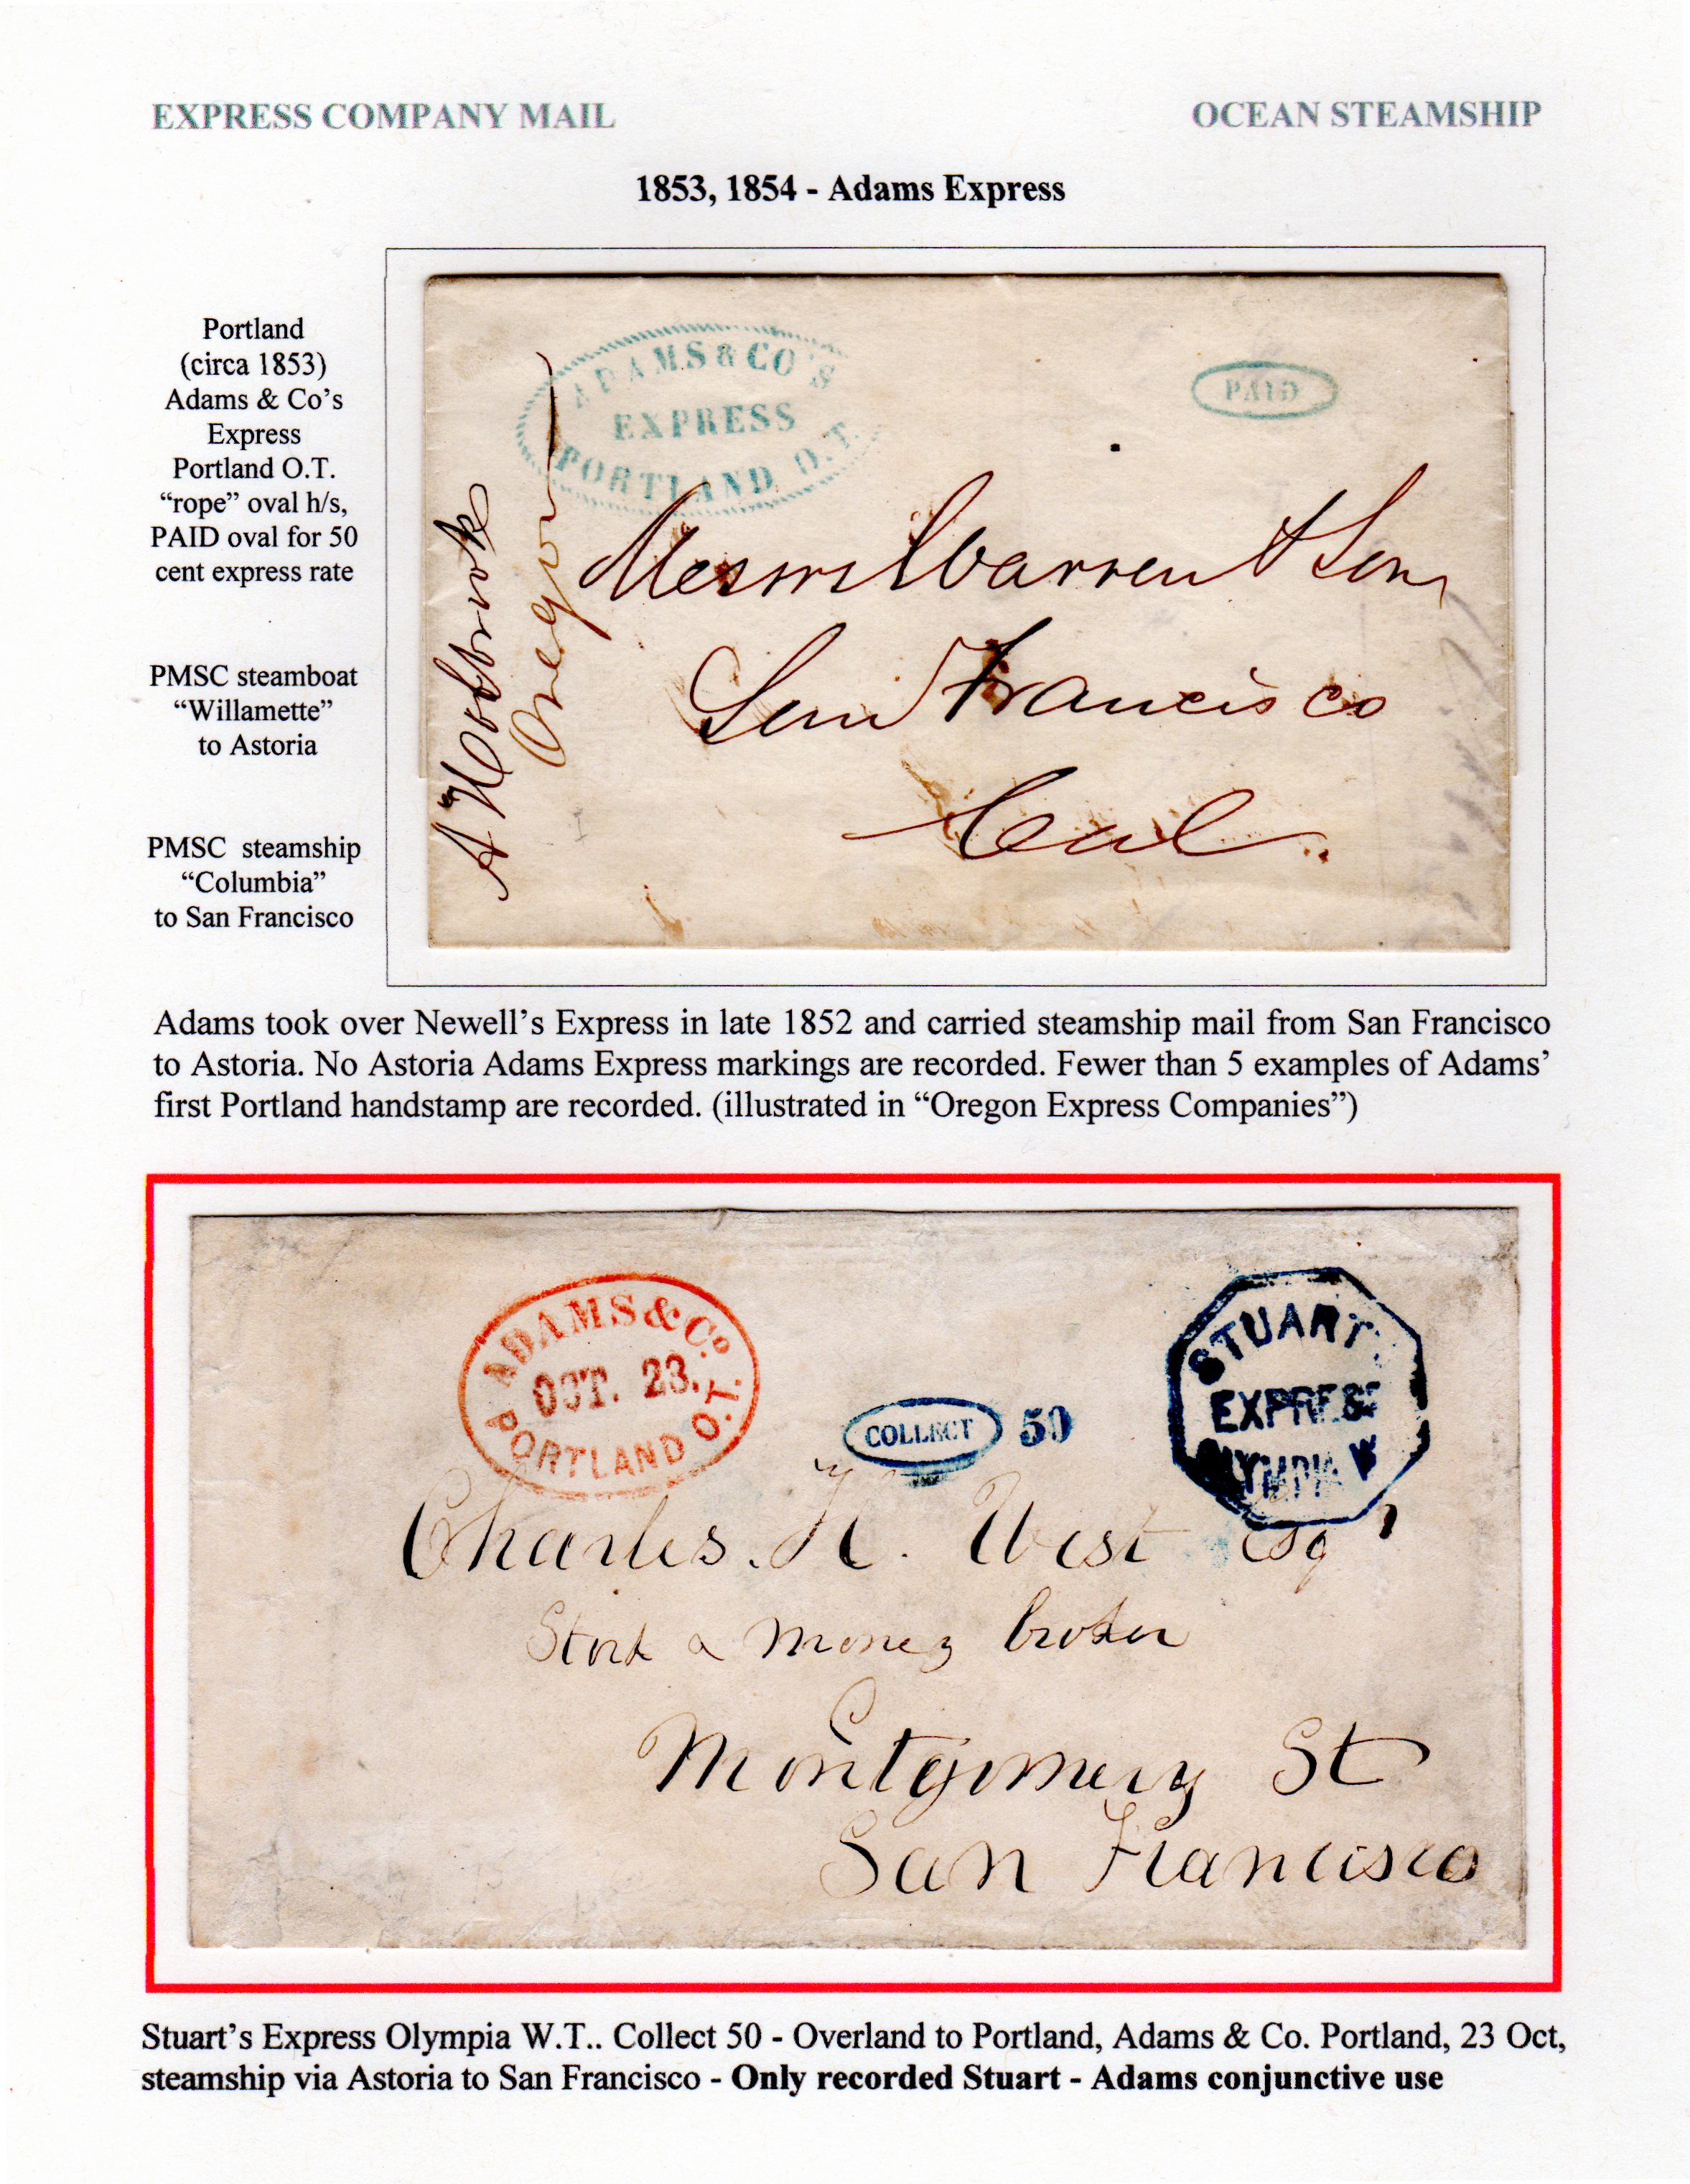 EXPRESS COMPANY MAIL
OCEAN STEAMSHIP
1853, 1854 - Adams Express
Portland
(circa 1853)
Adams & Co’s
Express
Portland O.T.
“rope” oval h/s,
PAID oval for 50
cent express rate
PMSC steamboat
“Willamette”
to Astoria
PMSC steamship
“Columbia”
to San Francisco
ADAMS & CO'S
EXPRESS
PORTLAND O.T.
PAID
Messrs Warren & Son
San Francisco
Cal.
Oregon
Adams took over Newell’s Express in late 1852 and carried steamship mail from San Francisco
to Astoria. No Astoria Adams Express markings are recorded. Fewer than 5 examples of Adams’
first Portland handstamp are recorded. (illustrated in “Oregon Express Companies”)
ADAMS & Co.
OCT. 23.
PORTLAND O.T.
COLLECT 50
STUART'S
EXPRESS
OLYMPIA W
Charles. H. West Esqr
Stock & Money broker
Montgomery St
San Francisco
Stuart’s Express Olympia W.T.. Collect 50 - Overland to Portland, Adams & Co. Portland, 23 Oct,
steamship via Astoria to San Francisco - Only recorded Stuart - Adams conjunctive use